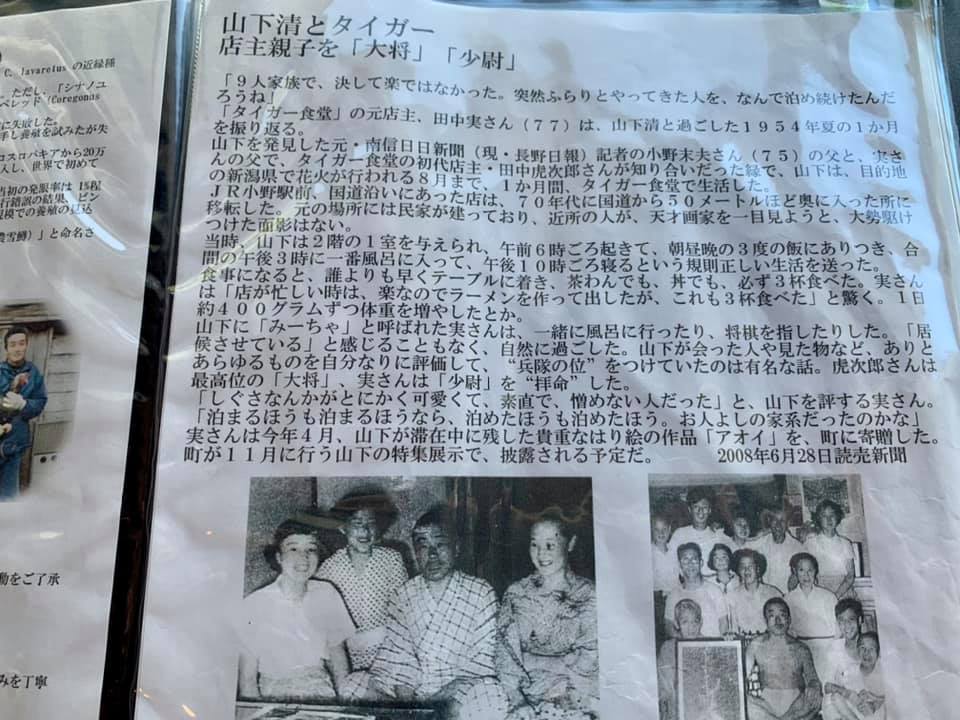 C. lavaretus の近縁種
ただし、「シナノユ
ペレッド (Coregonus
に失敗した。
手し養殖を試みたが失
コスロバキアから20万
入し、世界で初めて
当初の発眼率は 1%程
行錯誤の結果、ビン
規模での養殖の見込
雪鱒)」と命名さ
動をご了承
みを丁寧
山下清とタイガー
店主親子を「大将」「少尉」
「９人家族で、決して楽ではなかった。突然ふらりとやってきた人を、なんで泊め続けたんだ
ろうね」
「タイガー食堂」の元店主、田中実さん（７７）は、山下清と過ごした１９５４年夏の１か月
を振り返る。
山下を発見した元・南信日日新聞（現・長野日報）記者の小野末夫さん（７５）の父と、実さ
んの父で、タイガー食堂の初代店主・田中虎次郎さんが知り合いだった縁で、山下は、目的地
の新潟県で花火が行われる８月まで、１か月間、タイガー食堂で生活した。
ＪＲ小野駅前、国道沿いにあった店は、７０年代に国道から５０メートルほど奥に入った所に
移転した。元の場所には民家が建っており、近所の人が、天才画家を一目見ようと、大勢駆け
つけた面影はない。
当時、山下は２階の１室を与えられ、午前６時ごろ起きて、朝昼晩の３度の飯にありつき、合
間の午後３時に一番風呂に入って、午後１０時ごろ寝るという規則正しい生活を送った。
食事になると、誰よりも早くテーブルに着き、茶わんでも、丼でも、必ず３杯食べた。実さん
は「店が忙しい時は、楽なのでラーメンを作って出したが、これも３杯食べた」と驚く。１日
約４００グラムずつ体重を増やしたとか。
山下に「みーちゃ」と呼ばれた実さんは、一緒に風呂に行ったり、将棋を指したりした。「居
候させている」と感じることもなく、自然に過ごした。山下が会った人や見た物など、ありと
あらゆるものを自分なりに評価して、“兵隊の位”をつけていたのは有名な話。虎次郎さんは
最高位の「大将」、実さんは「少尉」を“拝命”した。
「しぐさなんかがとにかく可愛くて、素直で、憎めない人だった」と、山下を評する実さん。
「泊まるほうも泊まるほうなら、泊めたほうも泊めたほう。お人よしの家系だったのかな」
実さんは今年４月、山下が滞在中に残した貴重なはり絵の作品「アオイ」を、町に寄贈した。
町が１１月に行う山下の特集展示で、披露される予定だ。 2008年6月28日読売新聞